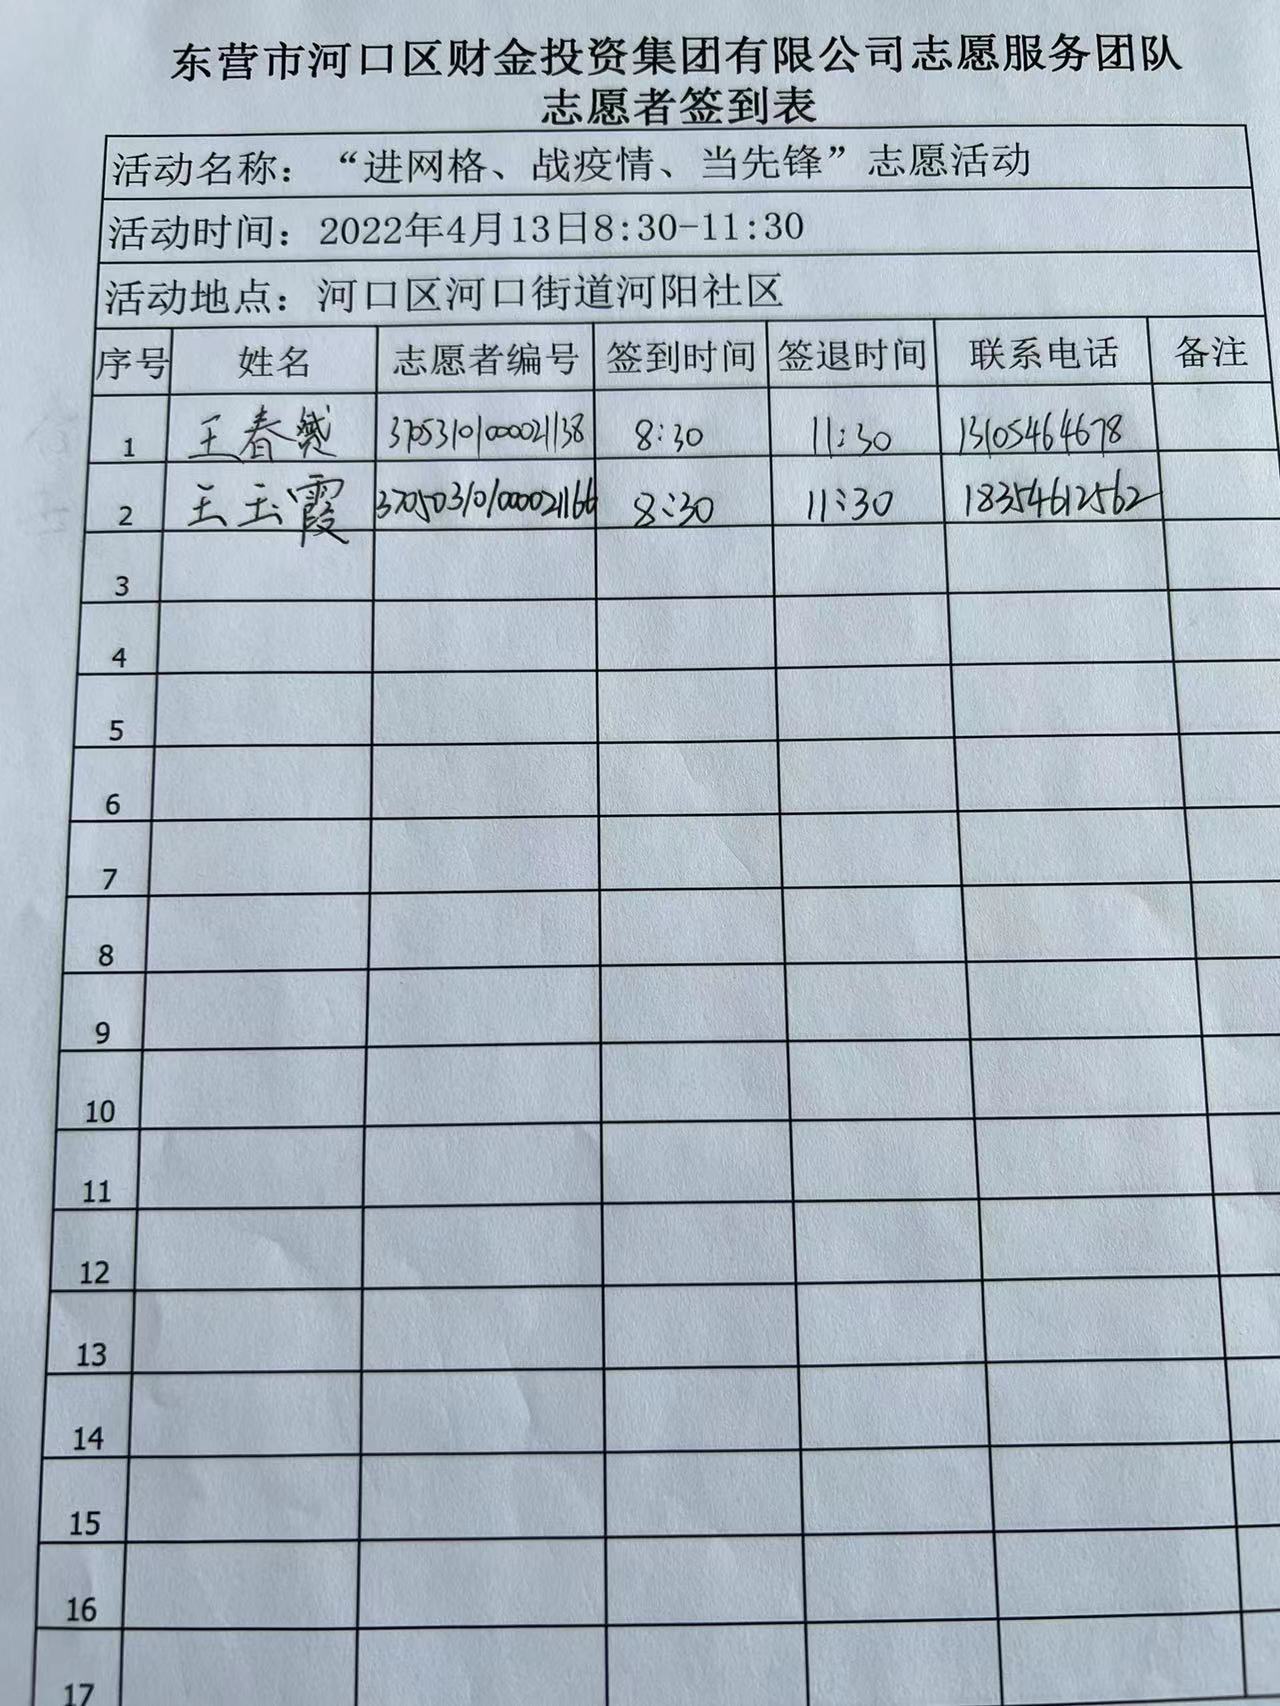 东营市河口区财金投资集团有限公司志愿服务团队
志愿者签到表
活动名称：“进网格、战疫情、当先锋”志愿活动
活动时间：2022年4月13日8:30-11:30
活动地点：河口区河口街道河阳社区
序号 姓名 志愿者编号 签到时间 签退时间 联系电话 备注
1 王春 37053101000021138 8:30 11:30 13105464678
2 王玉霞 370503101000021166 8:30 11:30 18354612562
3
4
5
6
7
8
9
10
11
12
13
14
15
16
17